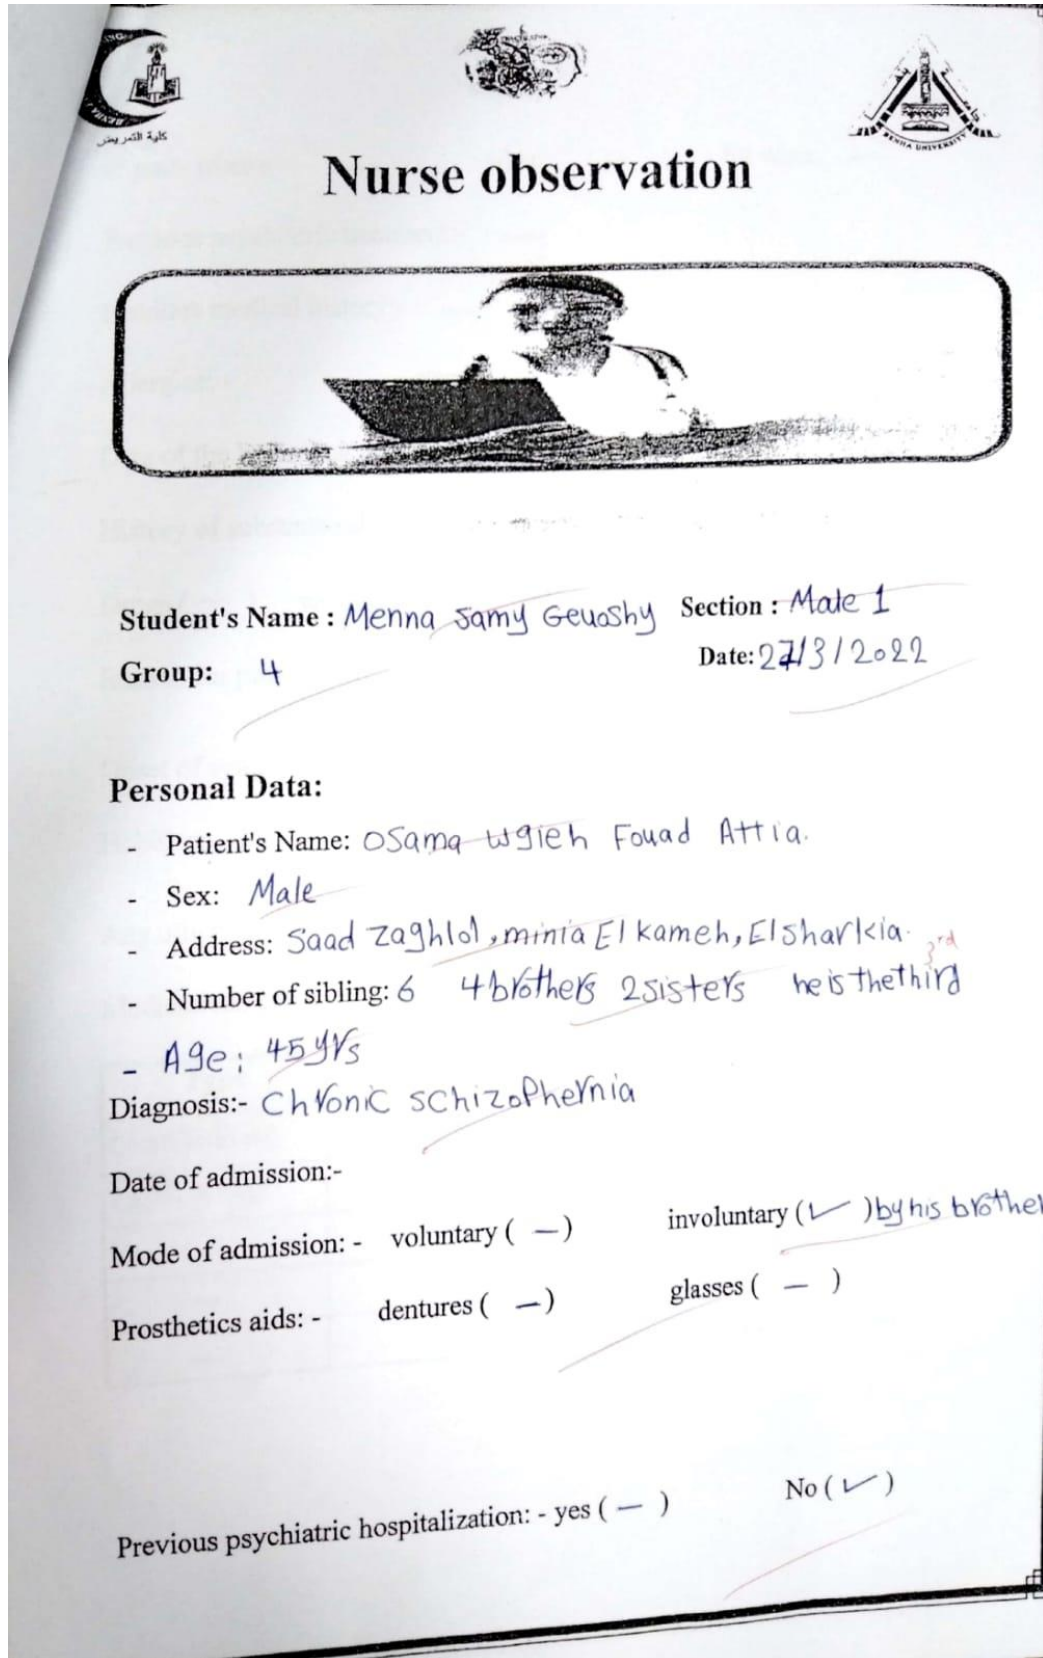 كلية التمريض
BENHA UNIVERSITY
Nurse observation
Student's Name : Menna Samy Geuoshy Section : Male 1
Group: 4 Date: 27/3/2022
Personal Data:
- Patient's Name: Osama Wgieh Fouad Attia.
- Sex: Male
- Address: Saad Zaghlol, minia El kameh, Elsharkia.
3rd
- Number of sibling: 6 4 brothers 2 sisters he is the third
- Age: 45 yrs
Diagnosis:- Chronic schizophernia
Date of admission:-
Mode of admission: - voluntary ( – ) involuntary (✓) by his brother
Prosthetics aids: - dentures ( – ) glasses ( – )
Previous psychiatric hospitalization: - yes ( – ) No (✓)